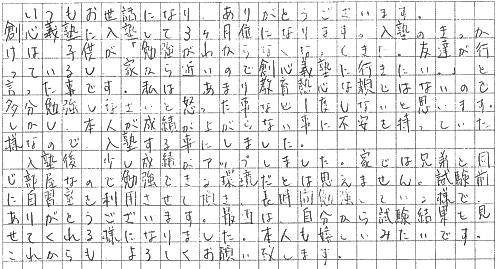 いつもお世話になり、ありがとうございます。
創心義塾に入塾して3ヶ月位になります。入塾のきっか
けは、子供が「勉強がわからなくなってきた。友達が行
っているし、家から近いので創心義塾に行きたい。」と
言った事です。私は、あまり教育熱心な親ではないので
多分勉強しなさいと怒った事など1度もないと思います。
しかし、本人が成績が上がらない事に不安を持っていた
様なので、入塾する事にしました。
入塾後、少し成績がアップしました。家では兄弟と同
じ部屋なので勉強できる環境だとは思えません。試験前
に自習室を利用させて頂き、長時間勉強している様で、
ありがとうございます。最近は、自分から試験結果を見
せてくれる様になりました。本人も嬉しいみたいです。
これからも、よろしくお願い致します。